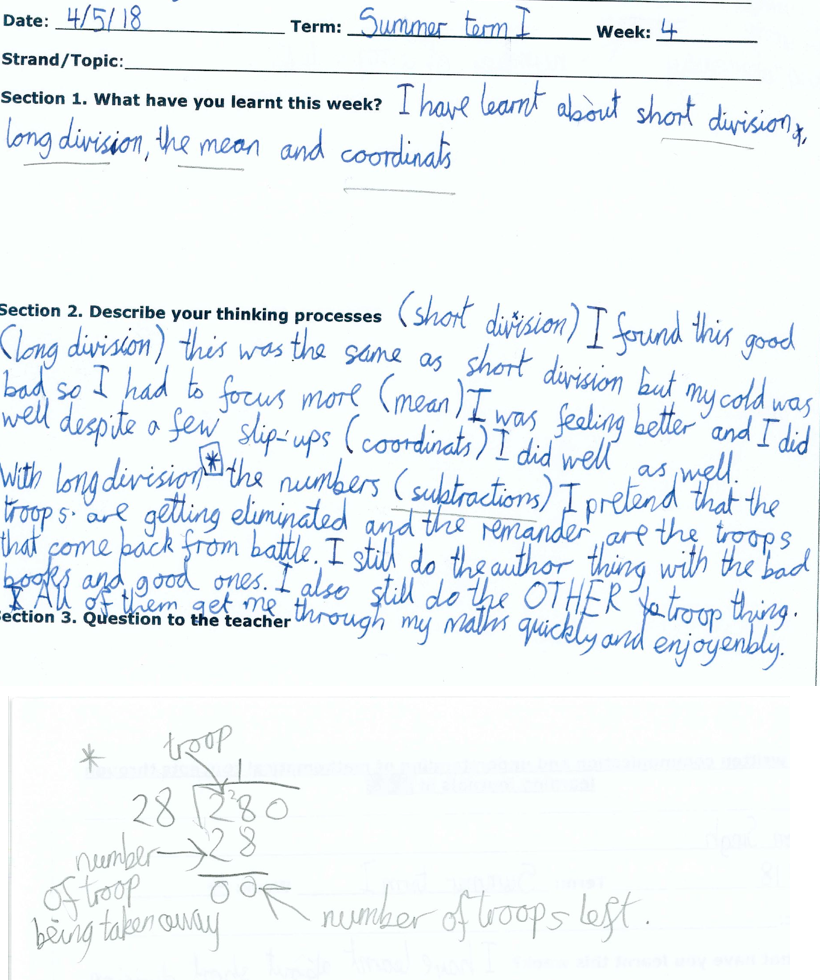 Date: 4/5/18 Term: Summer term I Week: 4
Strand/Topic:
Section 1. What have you learnt this week? I have learnt about short division,
long division, the mean and coordinats
Section 2. Describe your thinking processes (short division) I found this good
(long division) this was the same as short division but my cold was
bad so I had to focus more (mean) I was feeling better and I did
well despite a few slip-ups (coordinats) I did well as well.
With long division * the numbers (subtractions) I pretend that the
troops are getting eliminated and the remander are the troops
that come back from battle. I still do the author thing with the bad
books and good ones. I also still do the OTHER troop thing.
All of them get me through my maths quickly and enjoyenbly.
ection 3. Question to the teacher
* troop
1
28 2 2 8 0
number 28
of troop 00
being taken away number of troops left.